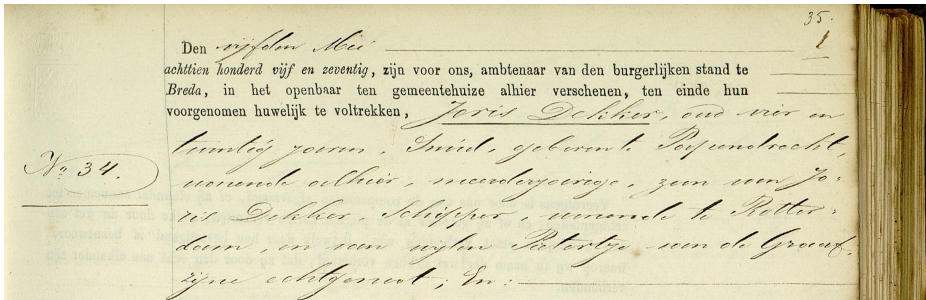 35.
1
Den vijfden Mei
achttien honderd vijf en zeventig, zijn voor ons, ambtenaar van den burgerlijken stand te
Breda, in het openbaar ten gemeentehuize alhier verschenen, ten einde hun
voorgenomen huwelijk te voltrekken, Joris Dekker, oud vier en
twintig jaren, Smid, geboren te Papendrecht,
No 34.
wonende alhier, meerderjarige, zoon van Jo-
ris Dekker, Schipper, wonende te Rotter-
dam en van wijlen Pietertje van de Graaf,
zijne echtgenoot; En: